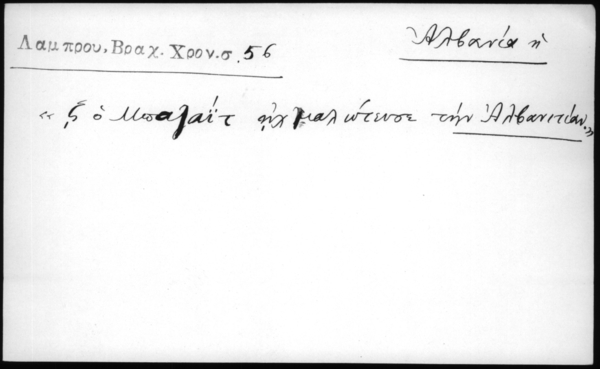 Λαμπρου, Βραχ. Χρον. σ. 56
Ἀλβανία ἡ
« ϛ ὁ Μπαγιαζίτ ᾐχμαλώτευσε τὴν Ἀλβανιτίαν. »